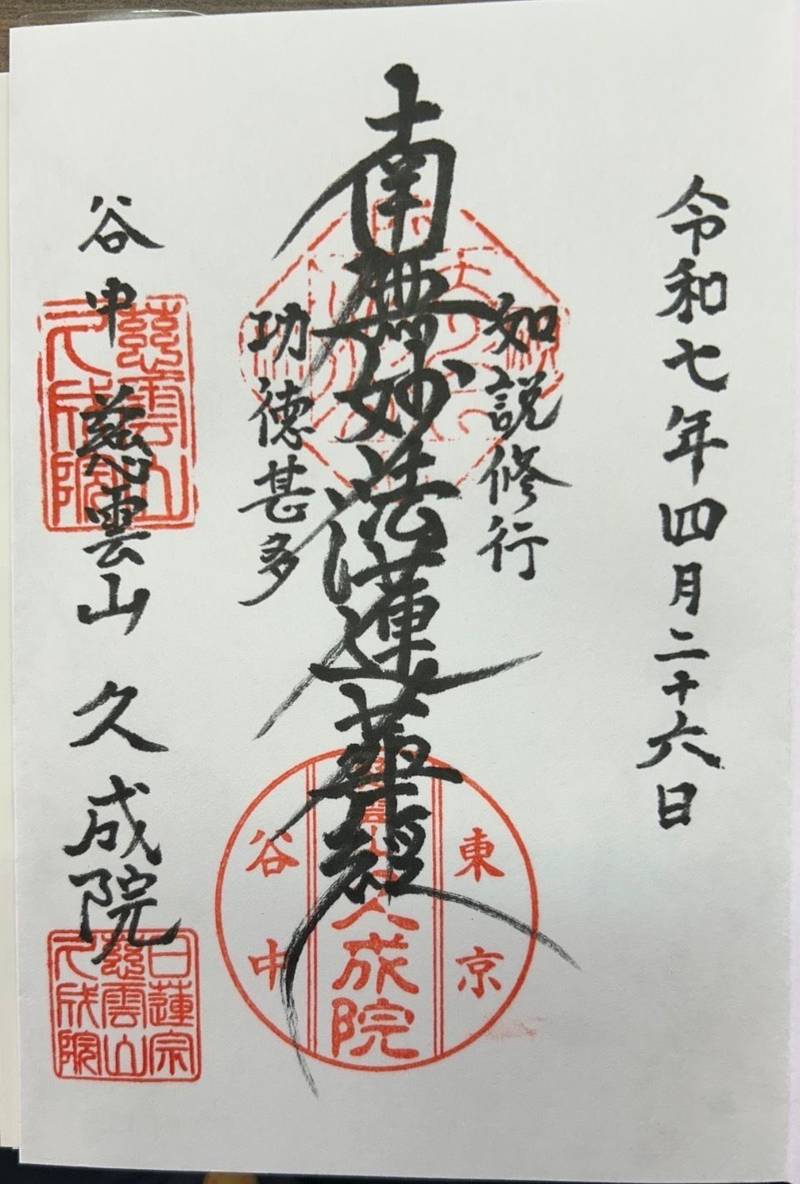 令和七年四月二十六日
如説修行
南無妙法蓮華経
功徳甚多
谷中 慈雲山 久成院
慈雲山
久成院
東京
久成院
谷中
日蓮宗
慈雲山
久成院